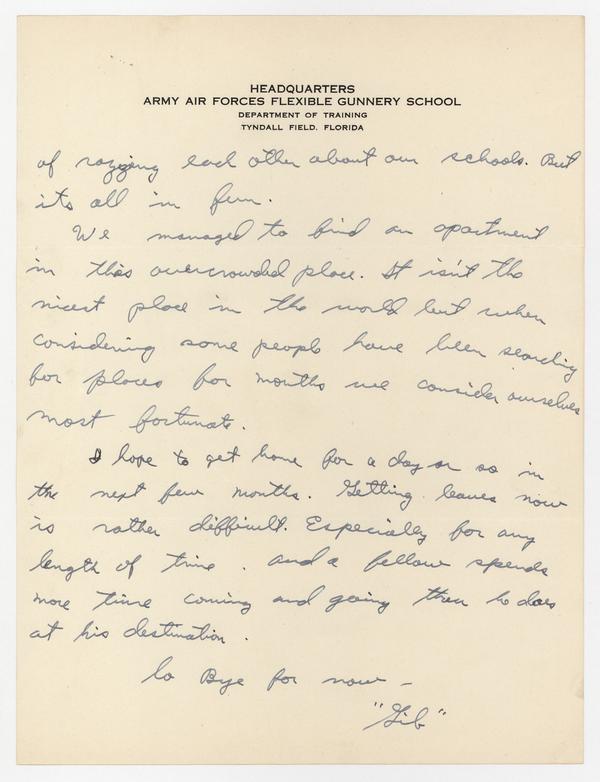 HEADQUARTERS
ARMY AIR FORCES FLEXIBLE GUNNERY SCHOOL
DEPARTMENT OF TRAINING
TYNDALL FIELD, FLORIDA
of razzing each other about our schools. But
its all in fun.
We managed to find an apartment
in this overcrowded place. It isn't the
nicest place in the world but when
considering some people have been searching
for places for months we consider ourselves
most fortunate.
I hope to get home for a day or so in
the next few months. Getting leaves now
is rather difficult. Especially for any
length of time. And a fellow spends
more time coming and going then he does
at his destination.
So Bye for now –
"Gib"